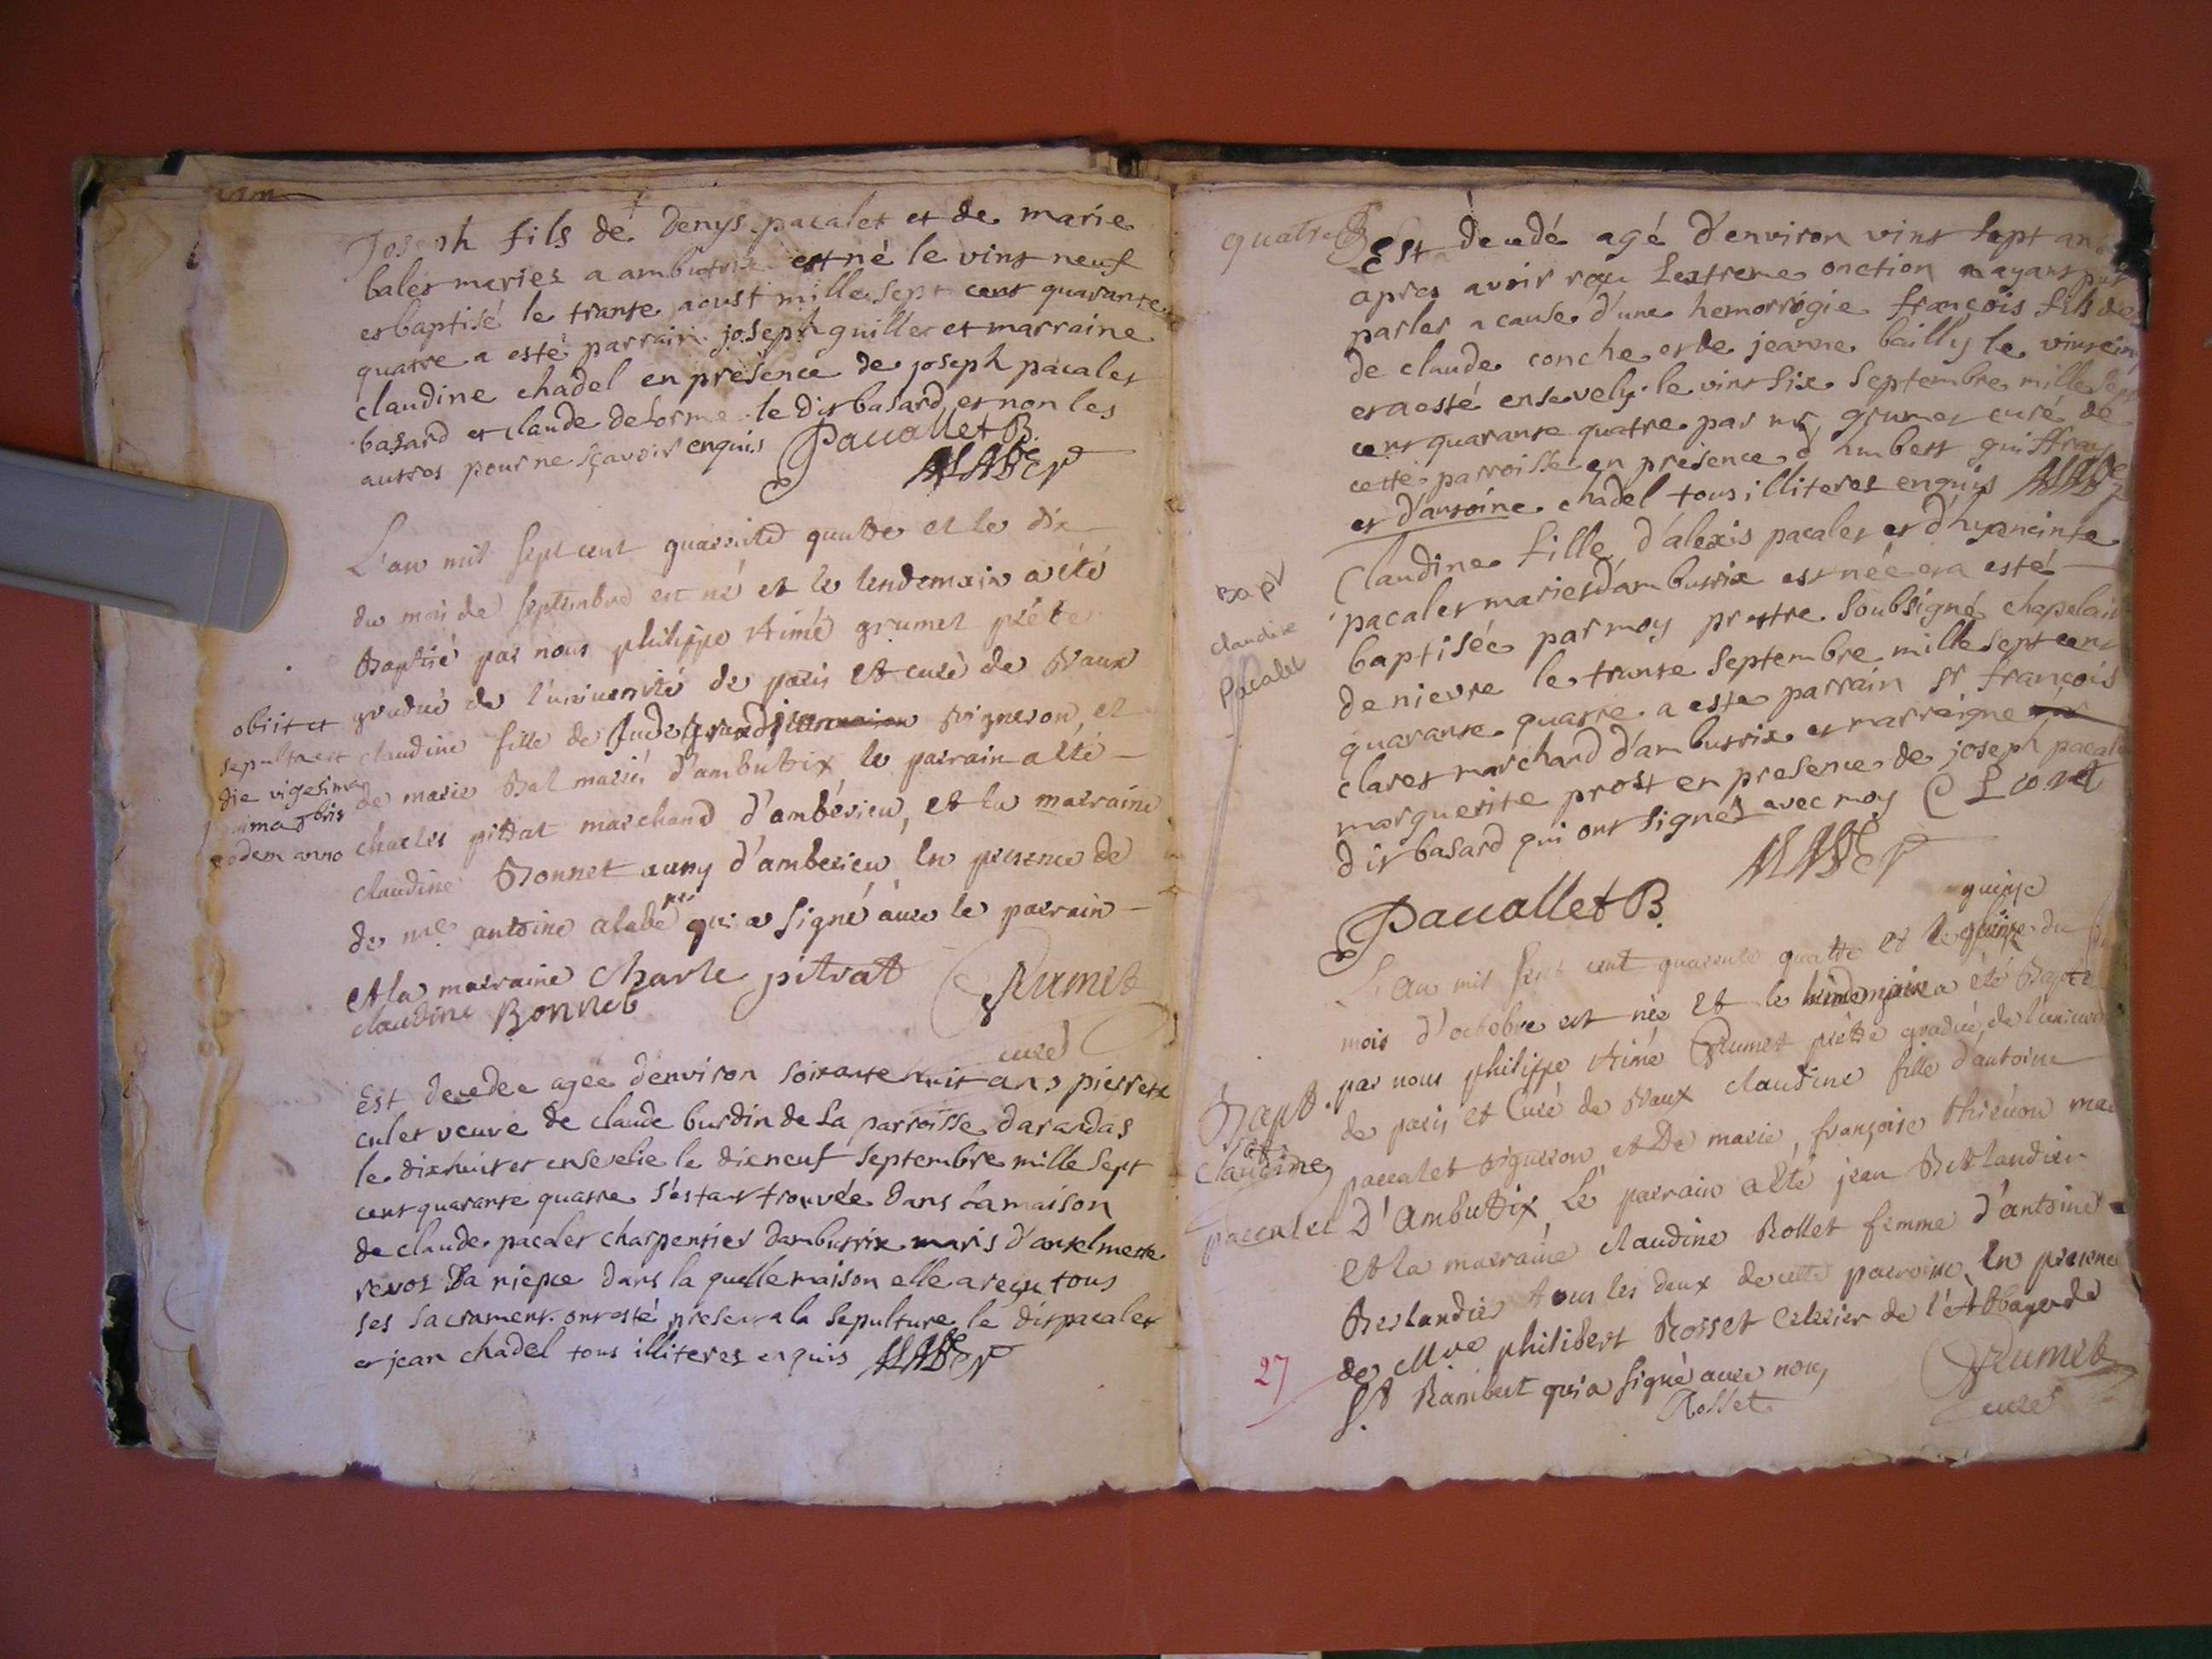 Joseph fils de Denys pacalet et de marie
balet mariez a ambutrix est né le vint neuf
et baptisé le trante aoust mille sept cent quarante
quatre a esté parrain joseph guillet et marraine
claudine chadel en présence de joseph pacalet
basard et claude delorme le dit basard et non les
autres pour ne sçavoir enquis Pacallet B.
L'an mil sept cent quarente quatre et le dix
du mois de septembre est né et le lendemain a été
Baptisé par nous philippe Aimé grumet prêtre
gradué de l'université de paris et curé de Vaux
claudine fille de vigneron, et
de marie Bal mariés d'ambutrix, le parrain a été
charles pitrat marchand d'ambérieu, et la marraine
claudine Bonnet d'amberieu, en presence de
de me antoine alabe qui a signé avec le parrain
et la marraine Charle pitrat Grumet
claudine Bonnet
curé
obiit et
sepulta est
die vigesima
bris
eodem anno
Est decedee agée d'environ soixante huit ans pierrete
culet veuve de claude burdin de La parroisse darandas
le dixhuit et ensevelie le dixneuf septembre mille sept
cent quarante quatre s'estant trouvée dans La maison
de claude pacalet charpentier dambutrix maris d'anselmette
revot Sa niepce dans la quelle maison elle a reçu tous
ses sacrament. ont esté present a la sepulture le dit pacalet
et jean chadel tous illiteres enquis
quatre
Est décédé agé d'environ vint sept ans
apres avoir reçu Lextreme onction n ayant put
parler a cause d'une hemorrogie françois fils de
de claude conche et de jeanne bailly le vint cinq
et a esté ensevely le vint six septembre mille sept
cent quarante quatre par mr grumet curé de
cette parroisse en présence d humbert guiffray
et d'antoine chadel tous illiteres enquis
Bapt
claudine
Pacalet
Claudine fille d'alexis pacalet et d'hyacinte
pacalet mariés d'ambutrix est née et a esté
baptisée par moy prestre soubsigné chapelain
de nievre le trante septembre mille sept cent
quarante quatre a este parrain sr françois
claret marchand d'ambutrix et marreigne
marguerite prost en presence de joseph pacalet
dit basard qui ont signés avec moy
Pacallet B.
quinze
L'an mil sept cent quarente quatre et le quinze du
mois d'octobre est née et le lendemain a été Baptisée
par nous philippe Aimé Grumet prêtre gradué de l'université
de paris et Curé de Vaux claudine fille d'antoine
paccalet vigneron et De marie, françoise mariés
D'Ambutrix, Le parrain a été jean Berlandier
et la marraine claudine Rollet femme d'antoine
Berlandier tous les deux de cette paroisse, en presence
de Mre philibert Rosset Celerier de l'Abbaye de
St Rambert qui a signé avec nous
Rosset
Grumet
curé
Bapt.
Claudine
paccalet
27